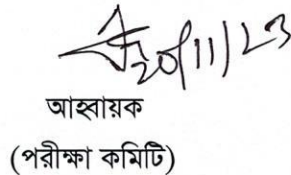 20/11/23
আহবায়ক
(পরীক্ষা কমিটি)